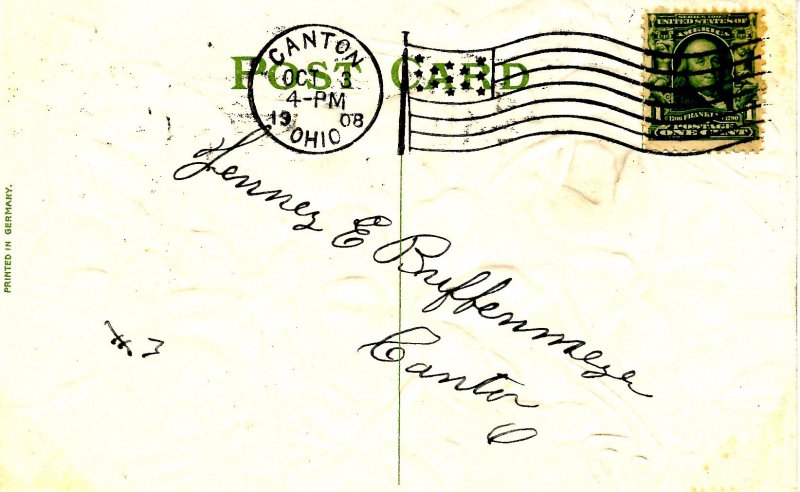 POST CARD
CANTON
OCT 3
4-PM
19 08
OHIO
SERIES 1902
UNITED STATES OF
AMERICA
1706 FRANKLIN 1790
POSTAGE
ONE CENT
E Buffenmeyer
Canton
O
#3
PRINTED IN GERMANY.